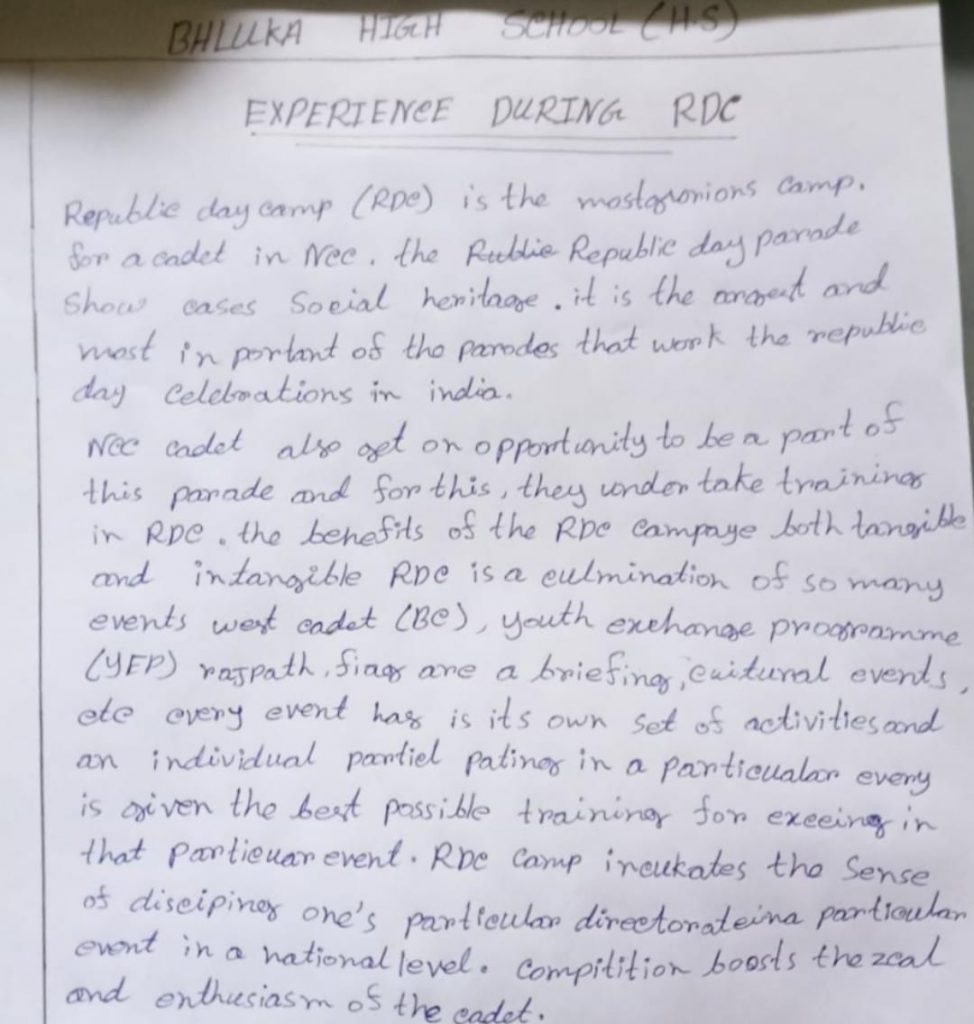 BHLUKA HIGH SCHOOL (H.S)
EXPERIENCE DURING RDC
Republic day camp (RDC) is the camp.
for a cadet in Ncc. the Republic day parade
Show cases Social heritage. it is the and
most in portant of the parades that work the republic
day celebrations in india.
Ncc cadet also get on opportunity to be a part of
this parade and for this, they under take training
in RDC. the benefits of the RDC campaye both tangible
and intangible RDC is a culmination of so many
events west cadet (BC), youth exchange programme
(YEP) rajpath, fiag are a briefing, cuitural events,
etc every event has is its own set of activities and
an individual partiel pating in a particualar every
is given the best possible training for exceeing in
that particuar event. RDC camp incukates the Sense
of discipineg one's particular directorateina particular
event in a national level. Compitition boosts the zeal
and enthusiasm of the cadet.